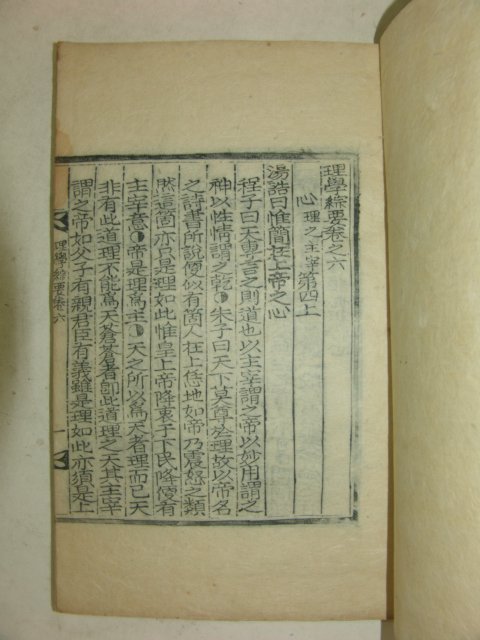 理學綜要卷之六
心理之主宰第四上
湯誥曰惟簡在上帝之心
程子曰天專言之則道也以主宰謂之帝以妙用謂之
神以性情謂之乾 朱子曰天下莫尊於理故以帝名
之詩書所說便似有箇人在上恁地如帝乃震怒之類
然這箇亦只是理如此惟皇上帝降衷于下民降便有
主宰意 帝是理爲主 天之所以爲天者理而已天
非有此道理不能爲天蒼蒼者卽此道理之天其主宰
謂之帝如父子有親君臣有義雖是理如此亦須是上
理學綜要卷六
一